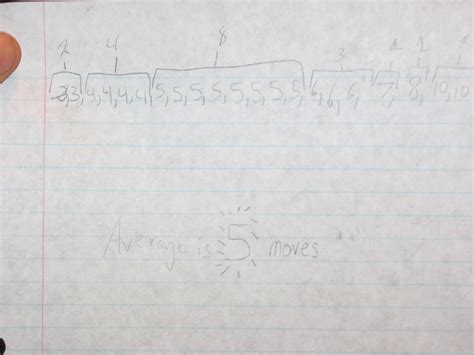 2 4 8 3 1 1
3,3,4,4,4,4,5,5,5,5,5,5,5,5,6,6,6,7,8,10,10
Average is 5 moves